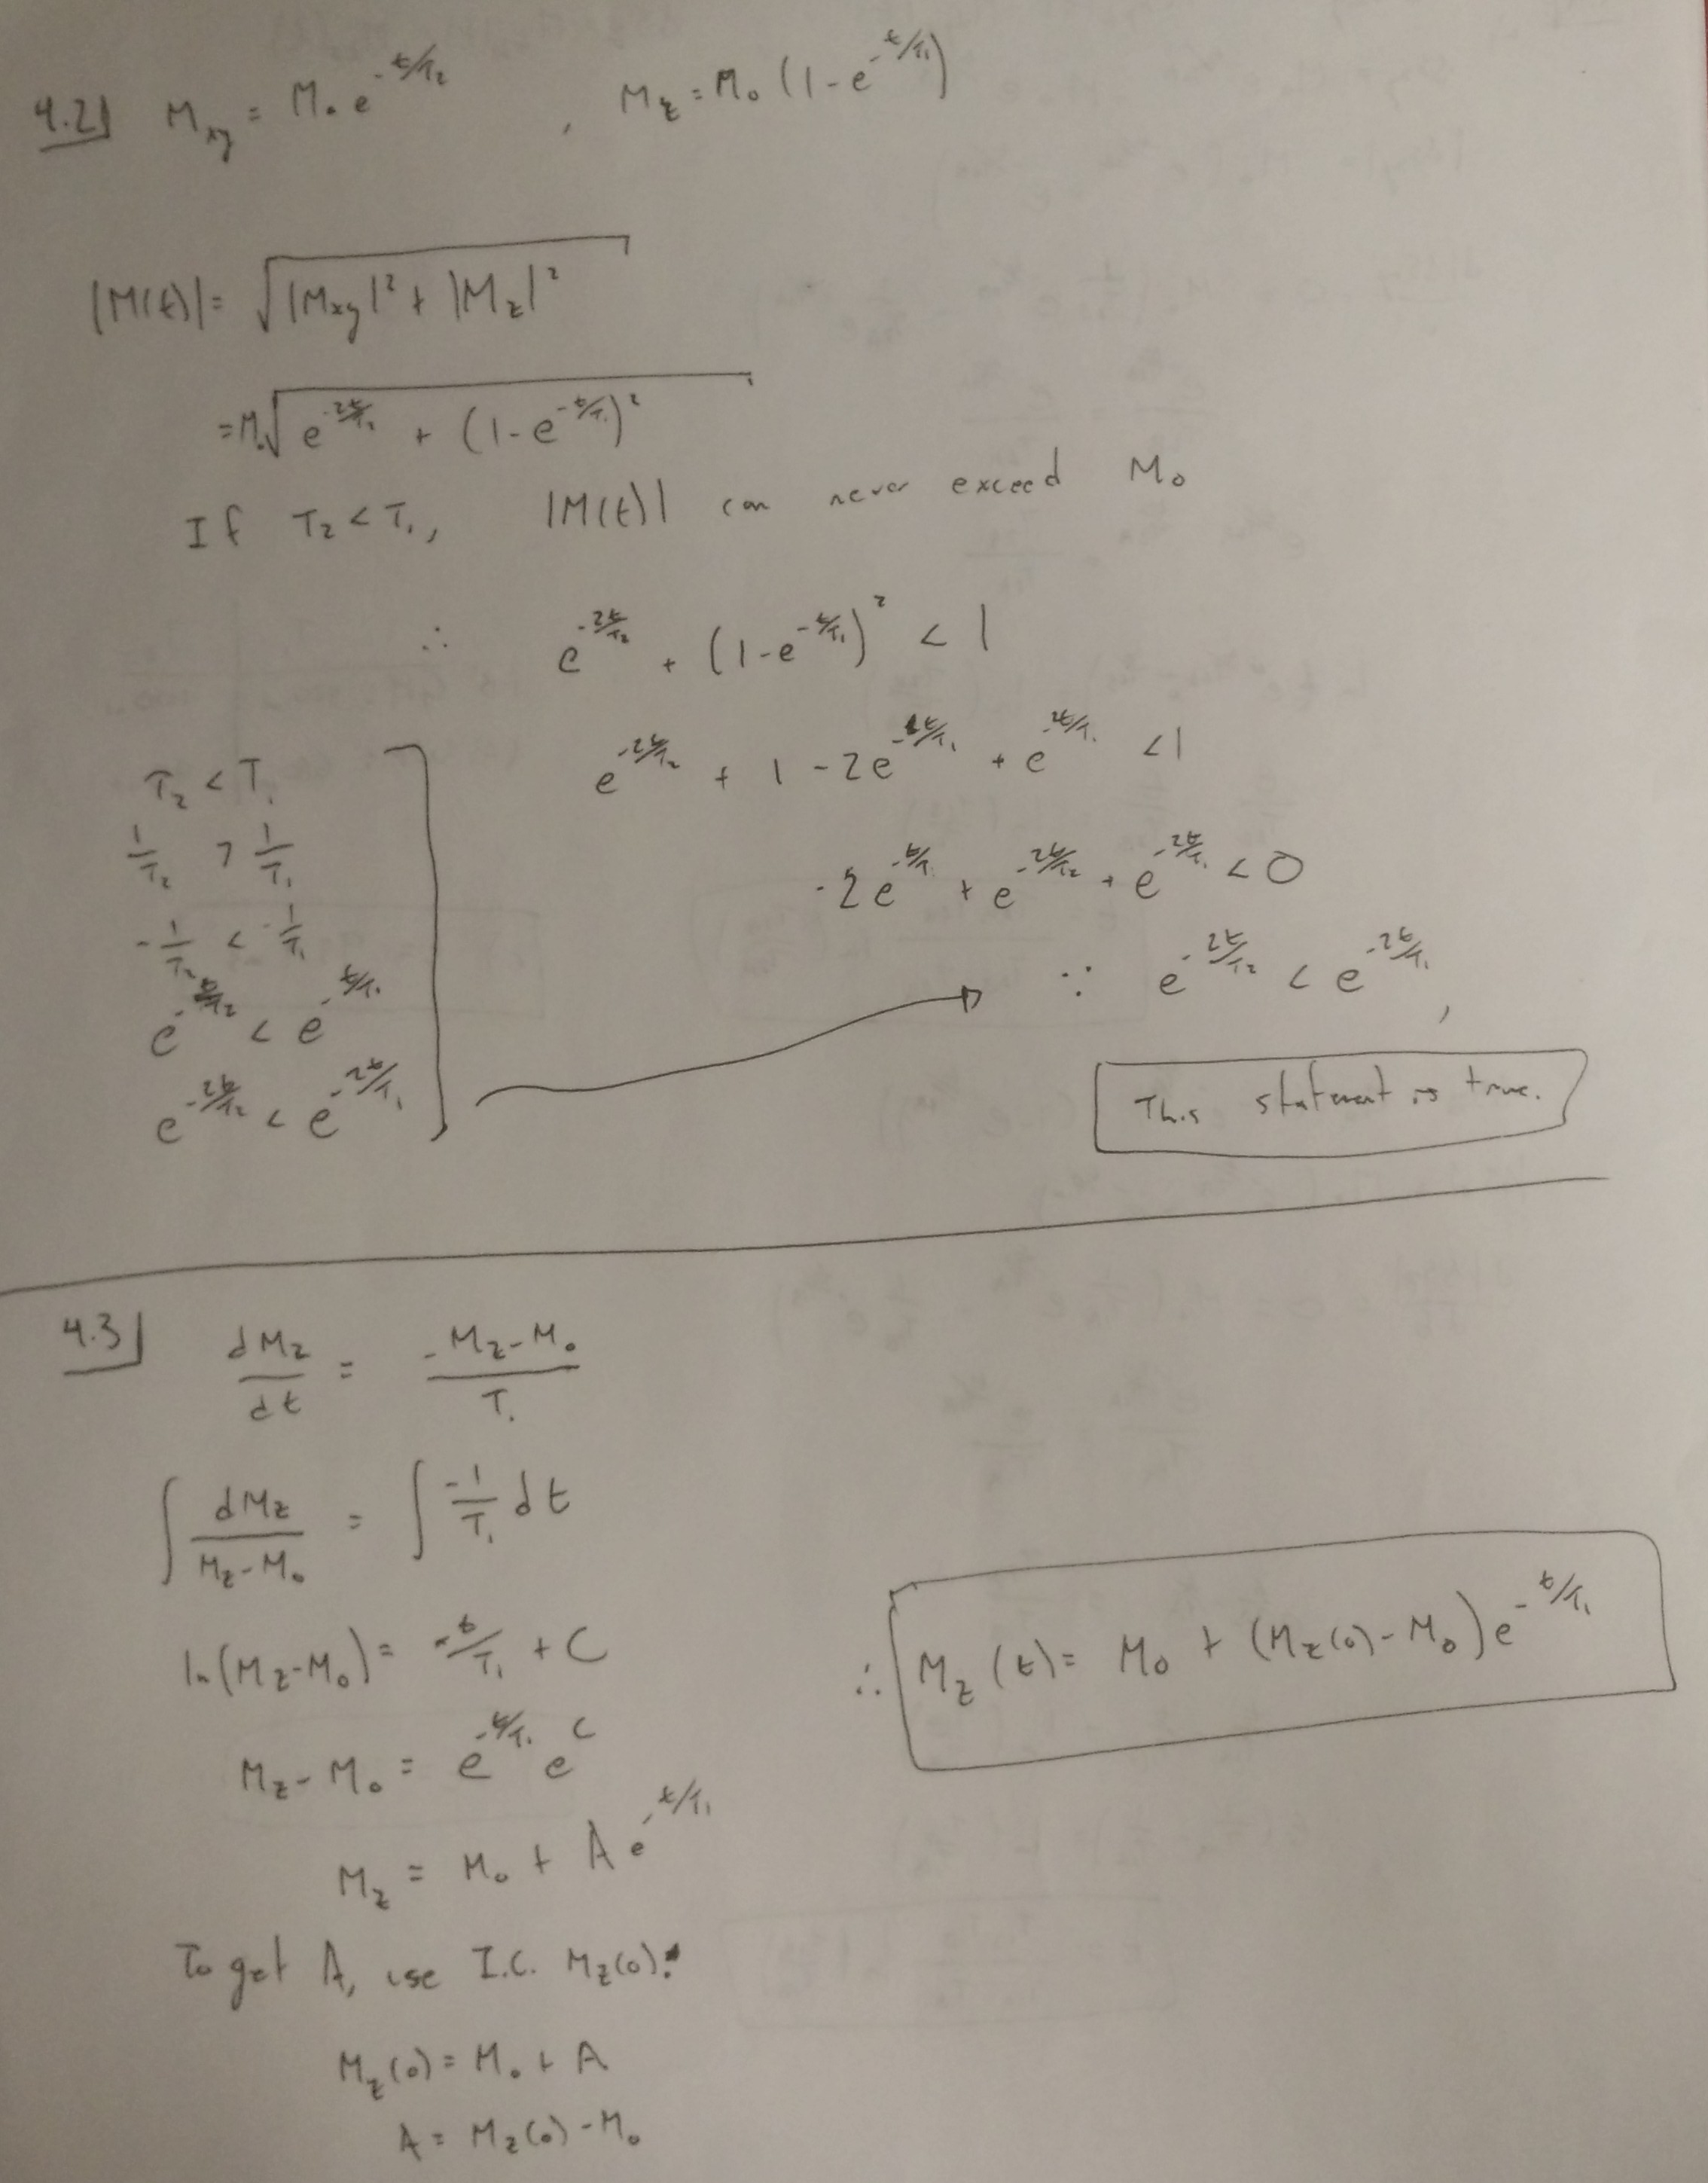 4.2] M_xy = M_0 e^{-t/T_2} , M_z = M_0 (1 - e^{-t/T_1})
|M(t)| = √(|M_xy|² + |M_z|²)
= M_0 √(e^{-2t/T_2} + (1 - e^{-t/T_1})²)
If T_2 < T_1, |M(t)| can never exceed M_0
∴ e^{-2t/T_2} + (1 - e^{-t/T_1})² < 1
e^{-2t/T_2} + 1 - 2e^{-t/T_1} + e^{-2t/T_1} < 1
-2e^{-t/T_1} + e^{-2t/T_2} + e^{-2t/T_1} < 0
T_2 < T_1
1/T_2 > 1/T_1
-1/T_2 < -1/T_1
e^{-t/T_2} < e^{-t/T_1}
e^{-2t/T_2} < e^{-2t/T_1}
∵ e^{-2t/T_2} < e^{-2t/T_1} ,
This statement is true.
4.3] dM_z/dt = -(M_z - M_0)/T_1
∫ dM_z/(M_z - M_0) = ∫ -1/T_1 dt
ln(M_z - M_0) = -t/T_1 + C
M_z - M_0 = e^{-t/T_1} e^C
M_z = M_0 + A e^{-t/T_1}
To get A, use I.C. M_z(0):
M_z(0) = M_0 + A
A = M_z(0) - M_0
∴ M_z(t) = M_0 + (M_z(0) - M_0) e^{-t/T_1}